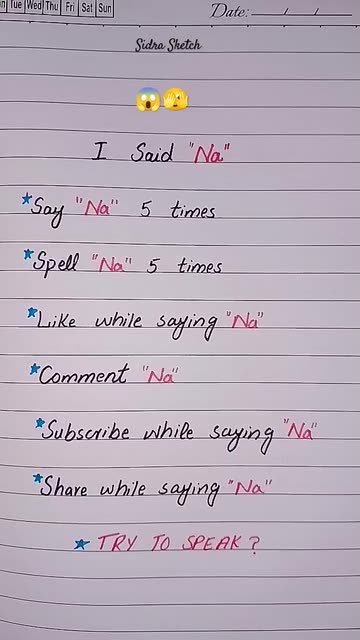 n Tue Wed Thu Fri Sat Sun
Date: / /
Sidra Sketch
😱🫣
I Said "Na"
*Say "Na" 5 times
*Spell "Na" 5 times
*Like while saying "Na"
*Comment "Na"
*Subscribe while saying "Na"
*Share while saying "Na"
* TRY TO SPEAK?